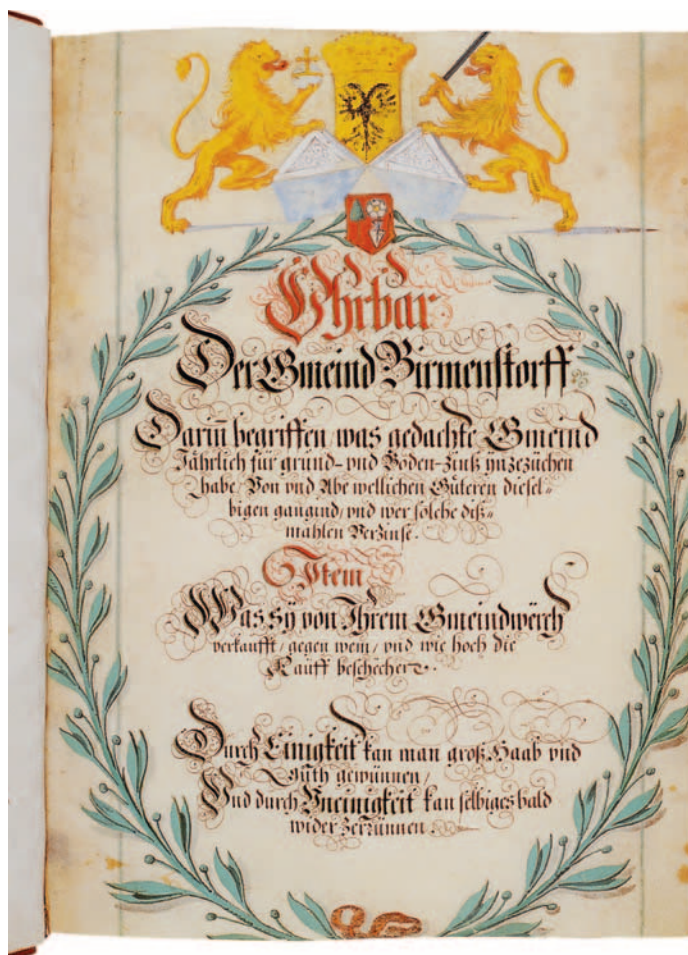 Uhrbar
Der Gmeind Birmenstorff
Dariñ begriffen, was gedachte Gmeind
Jährlich für grund- vnd Boden-Zinß ynzezüchen
habe, Von vnd Abe wellichen Güteren diesel=
bigen gangind, vnd wer solche diß=
mahlen Verzinse.
Item
Was sÿ von Ihrem Gmeindwërch
verkaufft, gegen wem, vnd wie hoch die
Kaüff beschechen.
Durch Einigkeit kan man groß Haab vnd
Guth gewünnen,
Und durch Vneinigkeit kan selbiges bald
wider Zerrünnen.